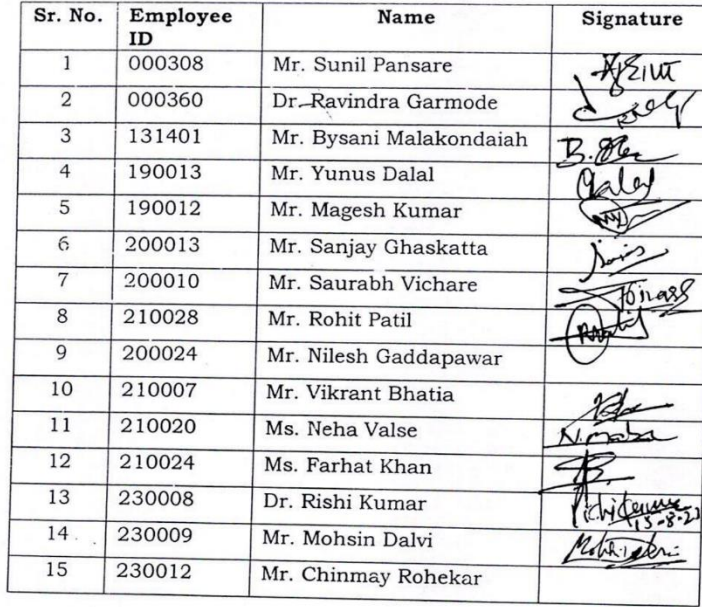 Sr. No. Employee ID Name Signature
1 000308 Mr. Sunil Pansare
2 000360 Dr. Ravindra Garmode
3 131401 Mr. Bysani Malakondaiah
4 190013 Mr. Yunus Dalal
5 190012 Mr. Magesh Kumar
6 200013 Mr. Sanjay Ghaskatta
7 200010 Mr. Saurabh Vichare
8 210028 Mr. Rohit Patil
9 200024 Mr. Nilesh Gaddapawar
10 210007 Mr. Vikrant Bhatia
11 210020 Ms. Neha Valse
12 210024 Ms. Farhat Khan
13 230008 Dr. Rishi Kumar
14 230009 Mr. Mohsin Dalvi
15 230012 Mr. Chinmay Rohekar